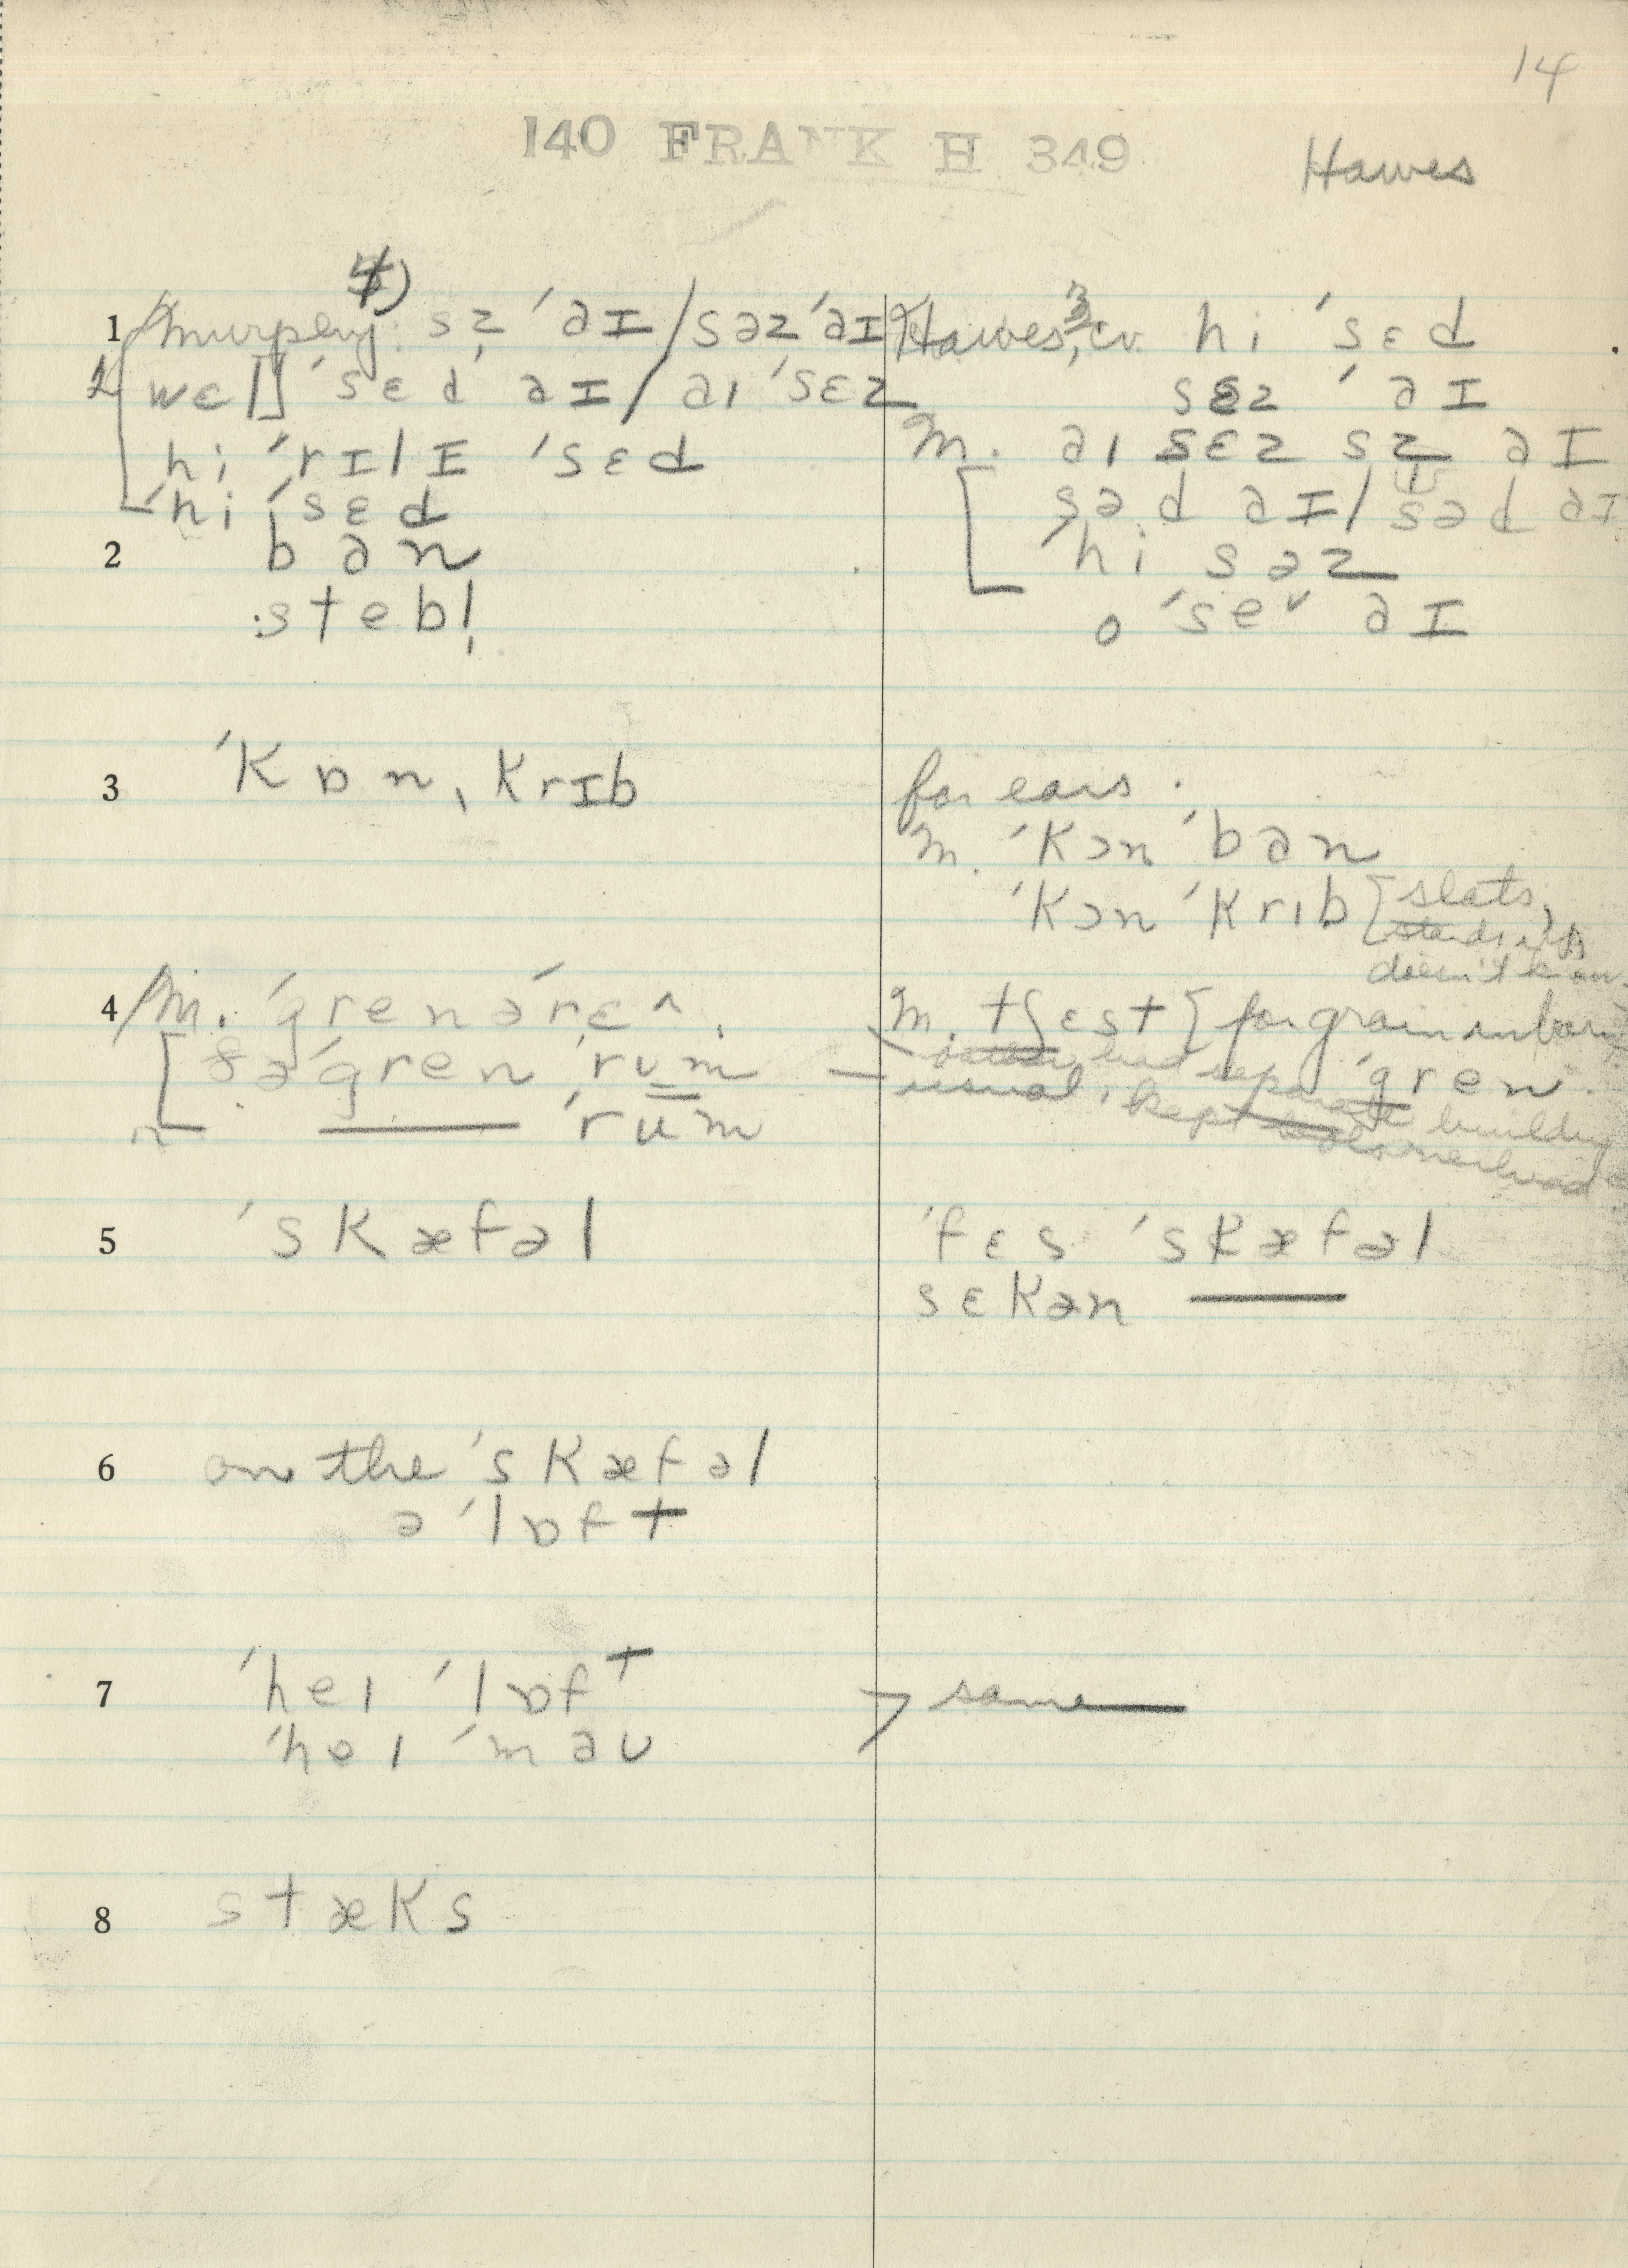 14
140 FRANK H 349
Hawes
4)
1 Murphy: sz̩ ˈaɪ / səz ˈaɪ
wɛl] ˈsɛd aɪ / aɪ ˈsɛz
hi ˈrɪlɪ ˈsɛd
ˈhi ˈsɛd
Hawes, cv. hi ˈsɛd
sɛz ˈaɪ
M. aɪ sɛz sz̩ aɪ
səd aɪ / səd aɪ
ˈhi səz
o ˈse˅ aɪ
2 ban
stebl̩
3 ˈkɒn, krɪb
for ears.
M. ˈkɔn ˈban
ˈkɔn ˈkrɪb [slats,
doesn't know
4 M. ˈgrenəˈrɛ^.
ðə ˈgren ˈrʊm
— ˈrum
M. tʃest [for grain in barn
had separate ˈgren
usual, kept building
overhead
5 ˈskæfəl
ˈfɛs ˈskæfəl
sɛkən —
6 on the ˈskæfəl
əˈlɒft
7 ˈheɪ ˈlɒft
ˈheɪ ˈmaʊ
> same —
8 stæks